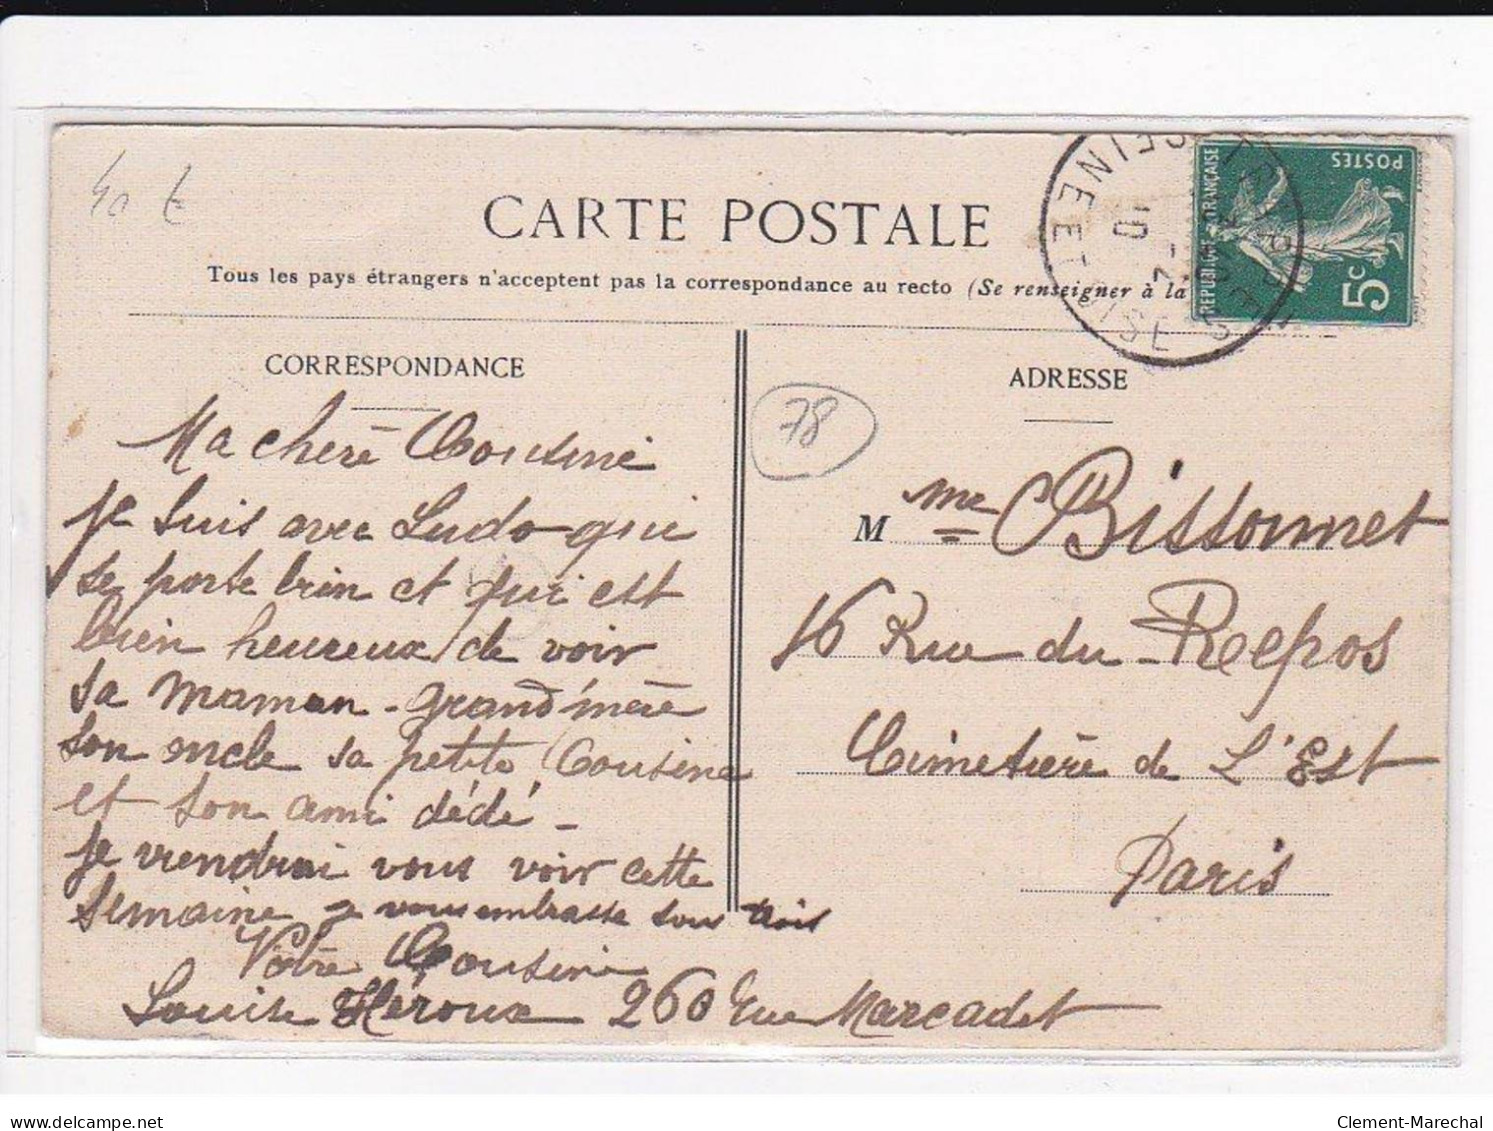 40 t
CARTE POSTALE
Tous les pays étrangers n'acceptent pas la correspondance au recto (Se renseigner à la
SEINE ET OISE
10
POSTES
REPUBLIQUE FRANÇAISE
5c
CORRESPONDANCE
Ma chère Cousine
je suis avec Ludo qui
se porte bien et qui est
bien heureux de voir
sa maman - grand'mère
son oncle sa petite Cousine
et son ami dédé -
je viendrai vous voir cette
semaine je vous embrasse tous trois
Votre Cousine
Louise Héroux 260 rue Marcadet
78
ADRESSE
M me Bissonnet
16 Rue du Repos
Cimetière de L'Est
Paris
delcampe.net
Clement-Marechal